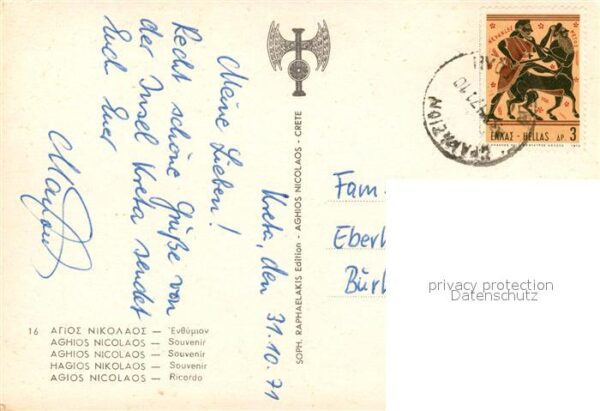 Kreta, den 31.10.71
Meine Lieben!
Recht schöne Grüße von
der Insel Kreta sendet
Euch Euer
16 ΑΓΙΟΣ ΝΙΚΟΛΑΟΣ — Ἐνθύμιον
AGHIOS NICOLAOS — Souvenir
AGHIOS NICOLAOS — Souvenir
HAGIOS NIKOLAOS — Souvenir
AGIOS NICOLAOS — Ricordo
SOPH. RAPHAELAKIS Edition - AGHIOS NICOLAOS - CRETE
ΕΛΛΑΣ - HELLAS ΔΡ. 3
Fam.
Eberh
privacy protection
Datenschutz